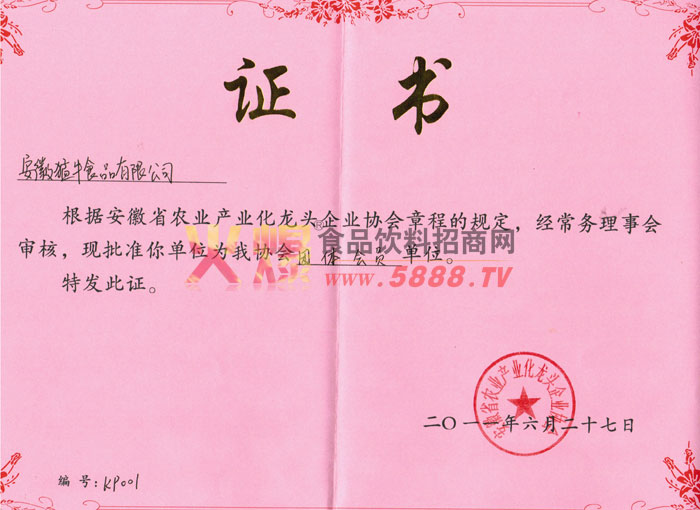 证 书
安徽猛牛食品有限公司
根据安徽省农业产业化龙头企业协会章程的规定，经常务理事会
审核，现批准你单位为我协会团体会员单位。
特发此证。
火爆®食品饮料招商网
www.5888.TV
安徽省农业产业化龙头企业协会
二〇一一年六月二十七日
编 号：KP001